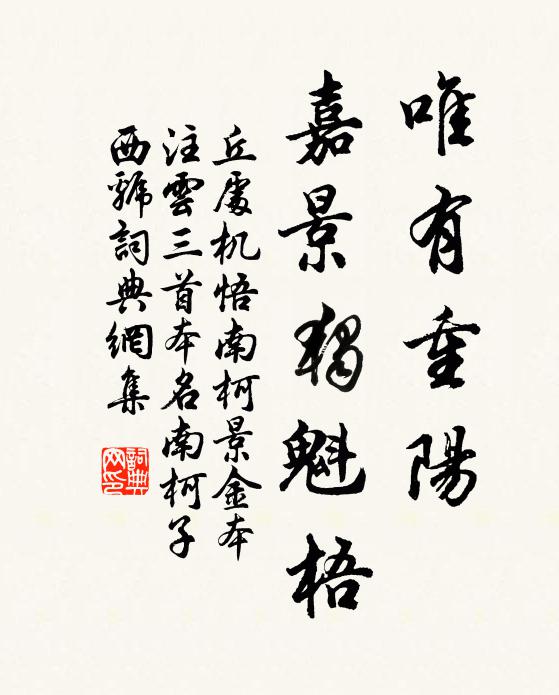 唯有重陽
嘉景獨魁梧
丘處机悟南柯景金本
注雲三首本名南柯子
西虢詞典網集
詞典網印